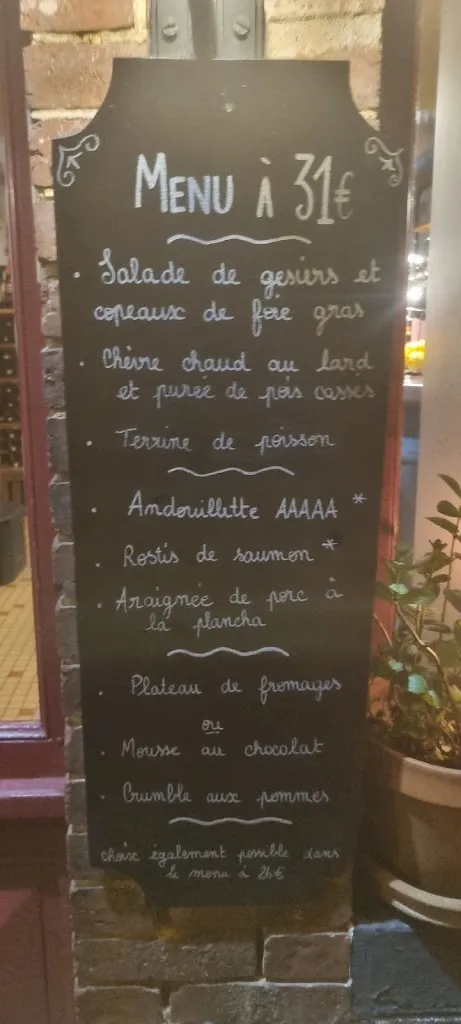 MENU À 31€
• Salade de gésiers et
copeaux de foie gras
• Chèvre chaud au lard
et purée de pois cassés
• Terrine de poisson
• Andouillette AAAAA *
• Rostis de saumon *
• Araignée de porc à
la plancha
• Plateau de fromages
ou
• Mousse au chocolat
• Crumble aux pommes
choix également possible dans
le menu à 26€